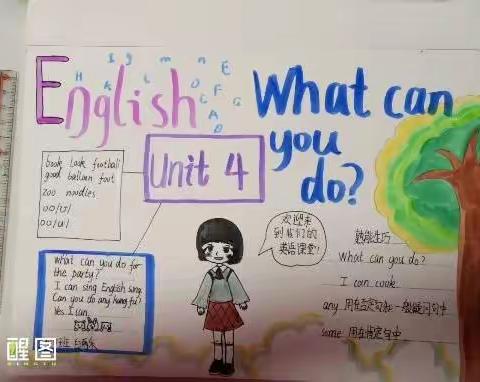 English
What can
you
do?
Unit 4
book look football
good balloon foot
zoo noodles
oo/ʊ/
oo/u:/
What can you do for
the party?
I can sing English song
Can you do any kung fu?
Yes. I can.
欢迎来
到我们的
英语课堂!
熟能生巧
What can you do?
I can cook.
any 用在否定句和一般疑问句中
some 用在肯定句中
醒图